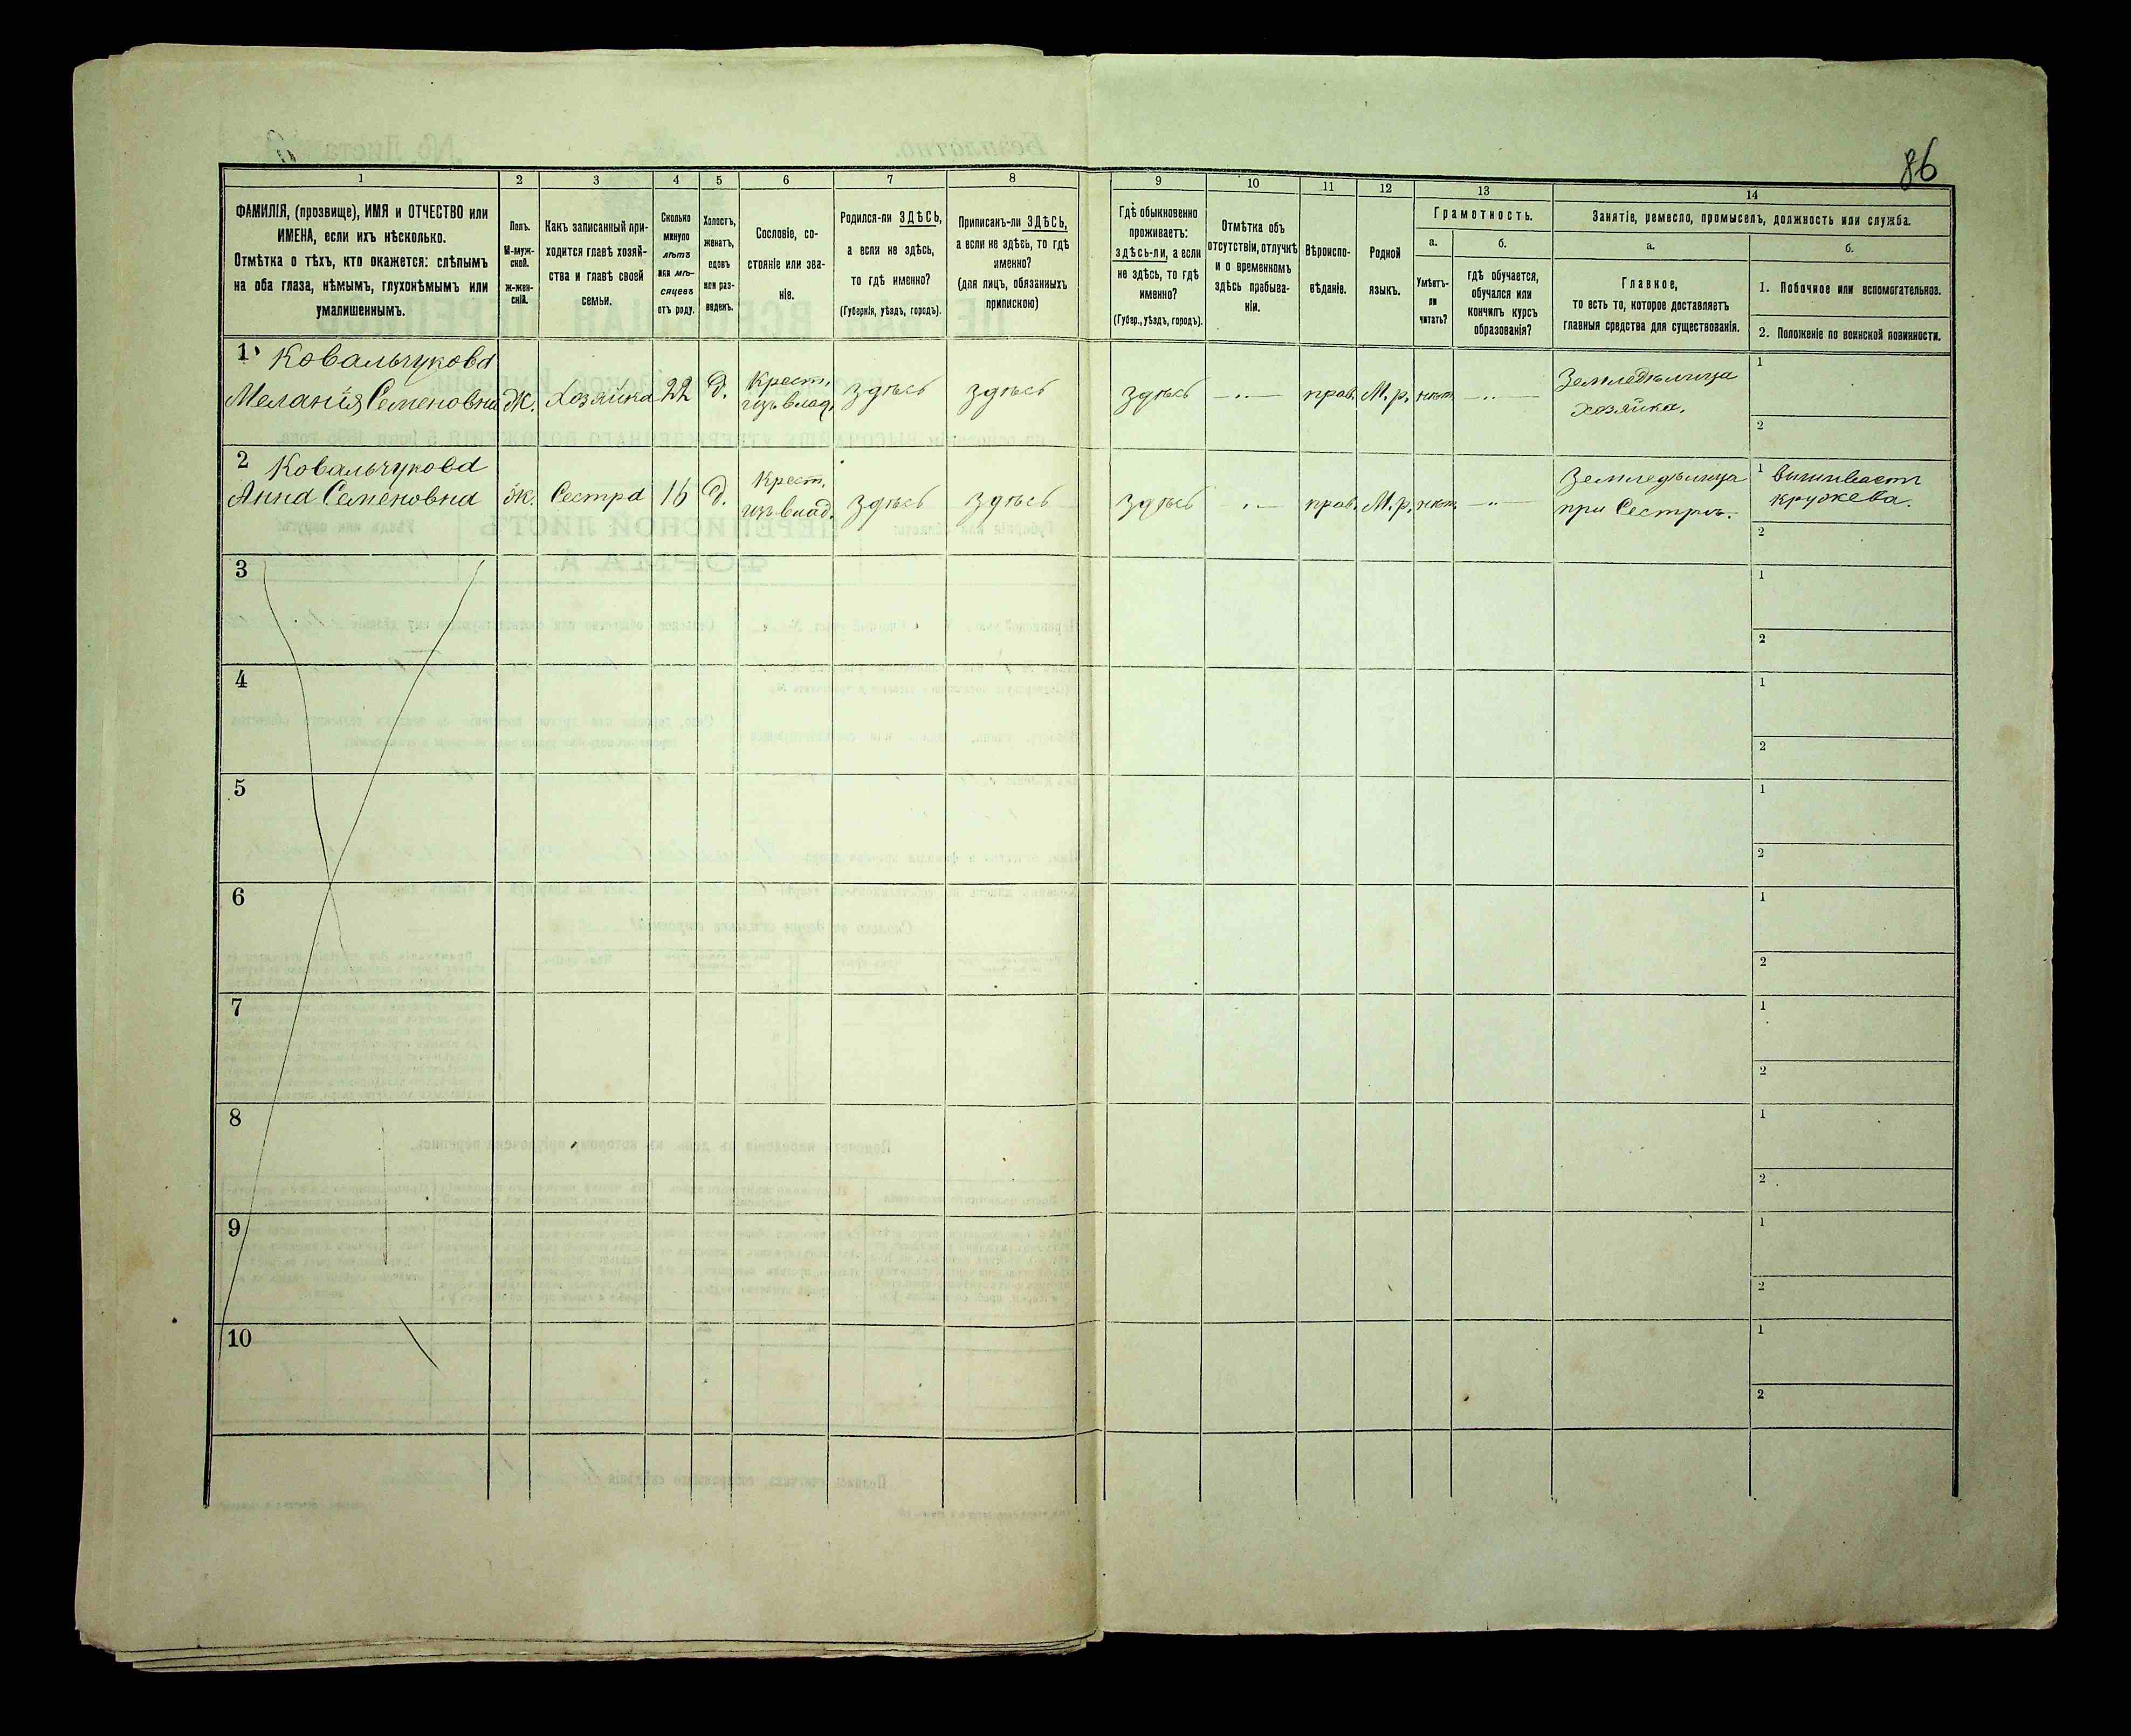 86
1 2 3 4 5 6 7 8 9 10 11 12 13 14
ФАМИЛІЯ, (прозвище), ИМЯ и ОТЧЕСТВО или
ИМЕНА, если ихъ нѣсколько.
Отмѣтка о тѣхъ, кто окажется: слѣпымъ
на оба глаза, нѣмымъ, глухонѣмымъ или
умалишеннымъ.
Полъ.
М-муж-
ской.
ж-жен-
скій.
Какъ записанный при-
ходится главѣ хозяй-
ства и главѣ своей
семьи.
Сколько
минуло
лѣтъ
или мѣ-
сяцевъ
отъ роду.
Холостъ,
женатъ,
вдовъ
или раз-
веденъ.
Сословіе, со-
стояніе или зва-
ніе.
Родился-ли ЗДѢСЬ,
а если не здѣсь,
то гдѣ именно?
(Губернія, уѣздъ, городъ).
Приписанъ-ли ЗДѢСЬ,
а если не здѣсь, то гдѣ
именно?
(для лицъ, обязанныхъ
припискою)
Гдѣ обыкновенно
проживаетъ:
здѣсь-ли, а если
не здѣсь, то гдѣ
именно?
(Губер., уѣздъ, городъ).
Отмѣтка объ
отсутствіи, отлучкѣ
и о временномъ
здѣсь пребыва-
ніи.
Вѣроиспо-
вѣданіе.
Родной
языкъ.
Грамотность.
а.
Умѣетъ-
ли
читать?
б.
гдѣ обучается,
обучался или
кончилъ курсъ
образованія?
Занятіе, ремесло, промыселъ, должность или служба.
а.
Главное,
то есть то, которое доставляетъ
главныя средства для существованія.
б.
1. Побочное или вспомогательное.
2. Положеніе по воинской повинности.
1 Ковальчукова
Меланія Семеновна Ж. Хозяйка 22 д. Крест. изъ влад. здѣсь здѣсь здѣсь прав. М.р. нѣт. Земледѣлица
хозяйка.
1
2
2 Ковальчукова
Анна Семеновна ж. Сестра 16 д. Крест. изъ влад. здѣсь здѣсь здѣсь прав. М.р. нѣт. Земледѣлица
при Сестрѣ.
1 Вышивает
кружева.
2
3 1
2
4 1
2
5 1
2
6 1
2
7 1
2
8 1
2
9 1
2
10 1
2